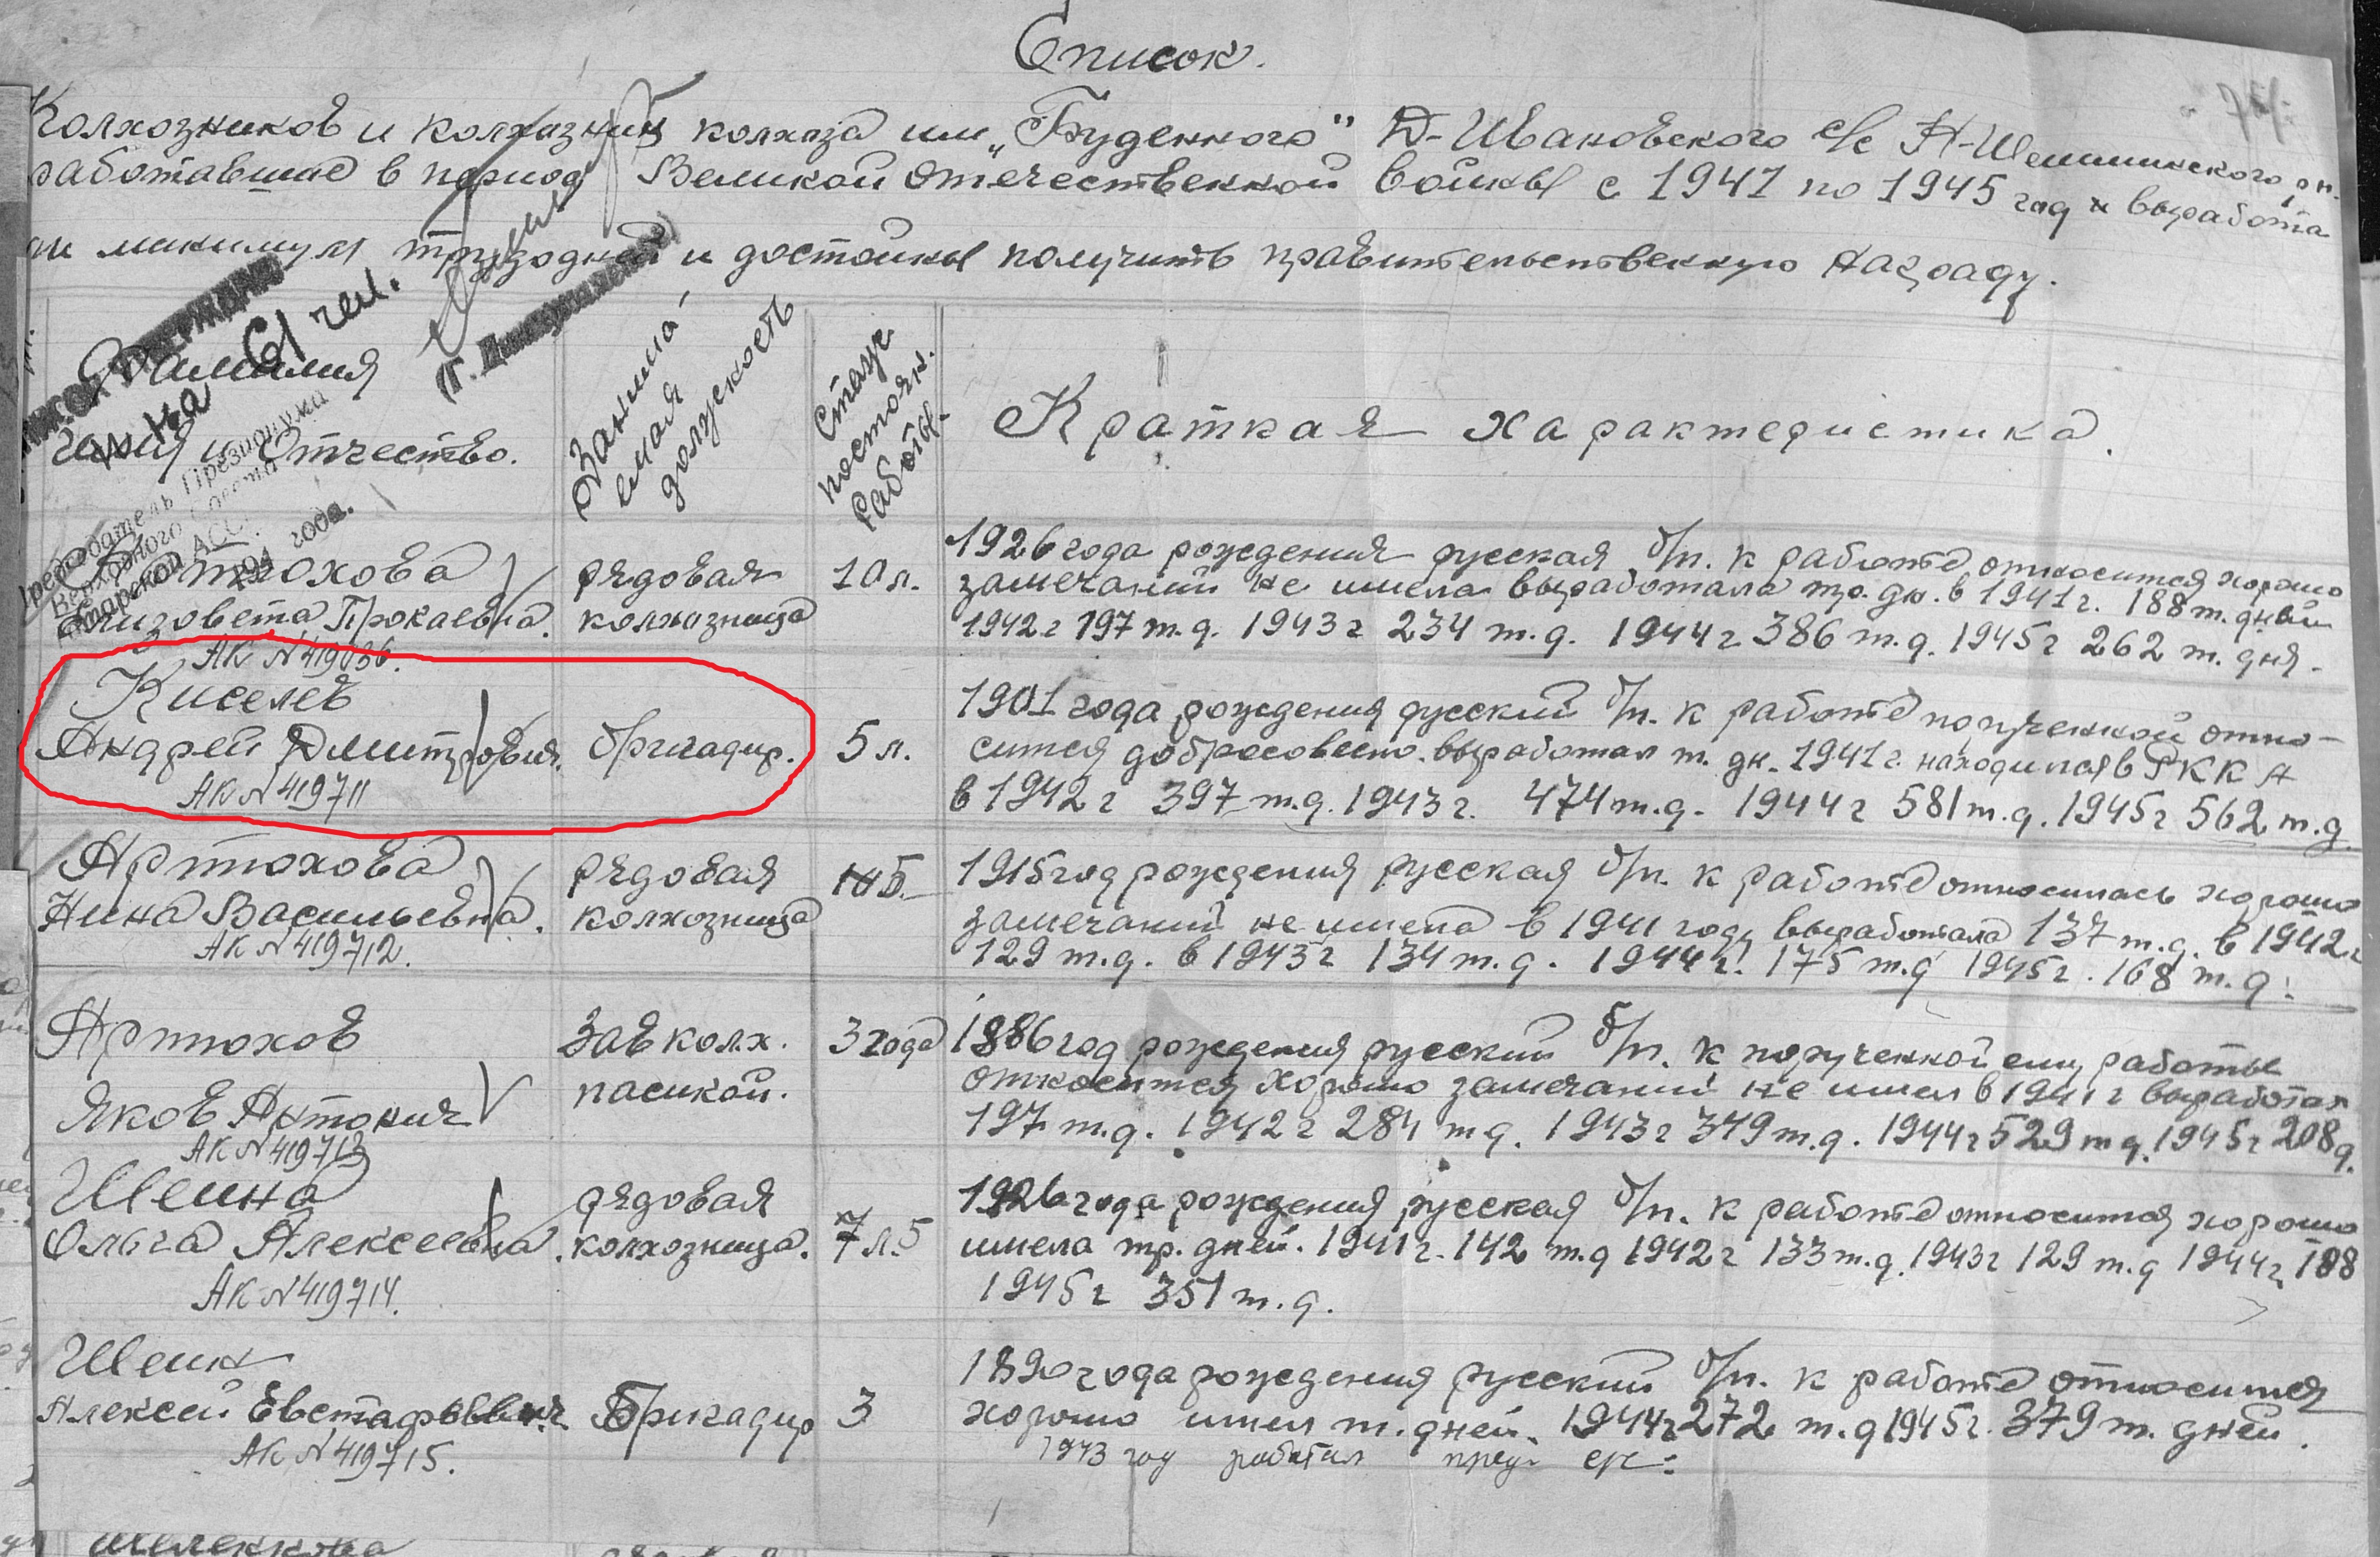 Список.
Колхозников и колхозниц колхоза им „Буденного" Д-Ивановского с/с Н-Шешминского рн.
работавшие в период Великой Отечественной Войны с 1941 по 1945 год и выработа
ли минимум трудодней и достойны получить правительственную награду.
Фамилия
имя и Отчество.
Занима-
емая
должность
Стаж
постоян.
работы.
Краткая характеристика.
на 61 чел.
Председатель Президиума
Верховного Совета
Татарской АССР
194 года.
(Г. Динмухаметов)
Артюхова
Елизовета Прокаевна.
АК N 419036.
рядовая
колхозница
10 л.
1926 года рождения русская б/п. к работе относится хорошо
замечаний не имела выработала тр. дн. в 1941 г. 188 т. дней
1942 г 197 т.д. 1943 г 234 т.д. 1944 г 386 т.д. 1945 г 262 т. дня.
Киселев
Андрей Дмитрович.
АК N 419711
бригадир.
5 л.
1901 года рождения русский б/п. к работе порученной отно-
сится добросовесно. выработал т. дн. 1941 г. находился в РККА
в 1942 г 397 т.д. 1943 г. 474 т.д. 1944 г 581 т.д. 1945 г 562 т.д.
Артюхова
Нина Васильевна.
АК N 419712.
рядовая
колхозница
1915 год рождения русская б/п. к работе относилась хорошо
замечаний не имела в 1941 году выработала 137 т.д. в 1942 г
129 т.д. в 1943 г 134 т.д. 1944 г. 175 т.д 1945 г. 168 т.д.
Артюхов
Яков Антонич
АК N 419713
Зав колх.
пасикой.
3 года
1886 год рождения русский б/п. к порученной ему работы
относится хорошо замечаний не имел в 1941 г выработал
197 т.д. 1942 г 284 т д. 1943 г 349 т.д. 1944 г 529 т д. 1945 г 208 д.
Шеина
Ольга Алексеевна.
АК N 419714.
рядовая
колхозница.
7 л. 5
1926 года рождения русская б/п. к работе относится хорошо
имела тр. дней. 1941 г. 142 т.д 1942 г 133 т.д. 1943 г 129 т.д 1944 г. 188
1945 г 351 т.д.
Шеин
Алексей Евстафьевич
АК N 419715.
Бригадир
3
1890 года рождения русский б/п. к работе относится
хорошо имел т. дней. 1944 г 272 т.д 1945 г. 379 т. дней.
1943 год работал пред.